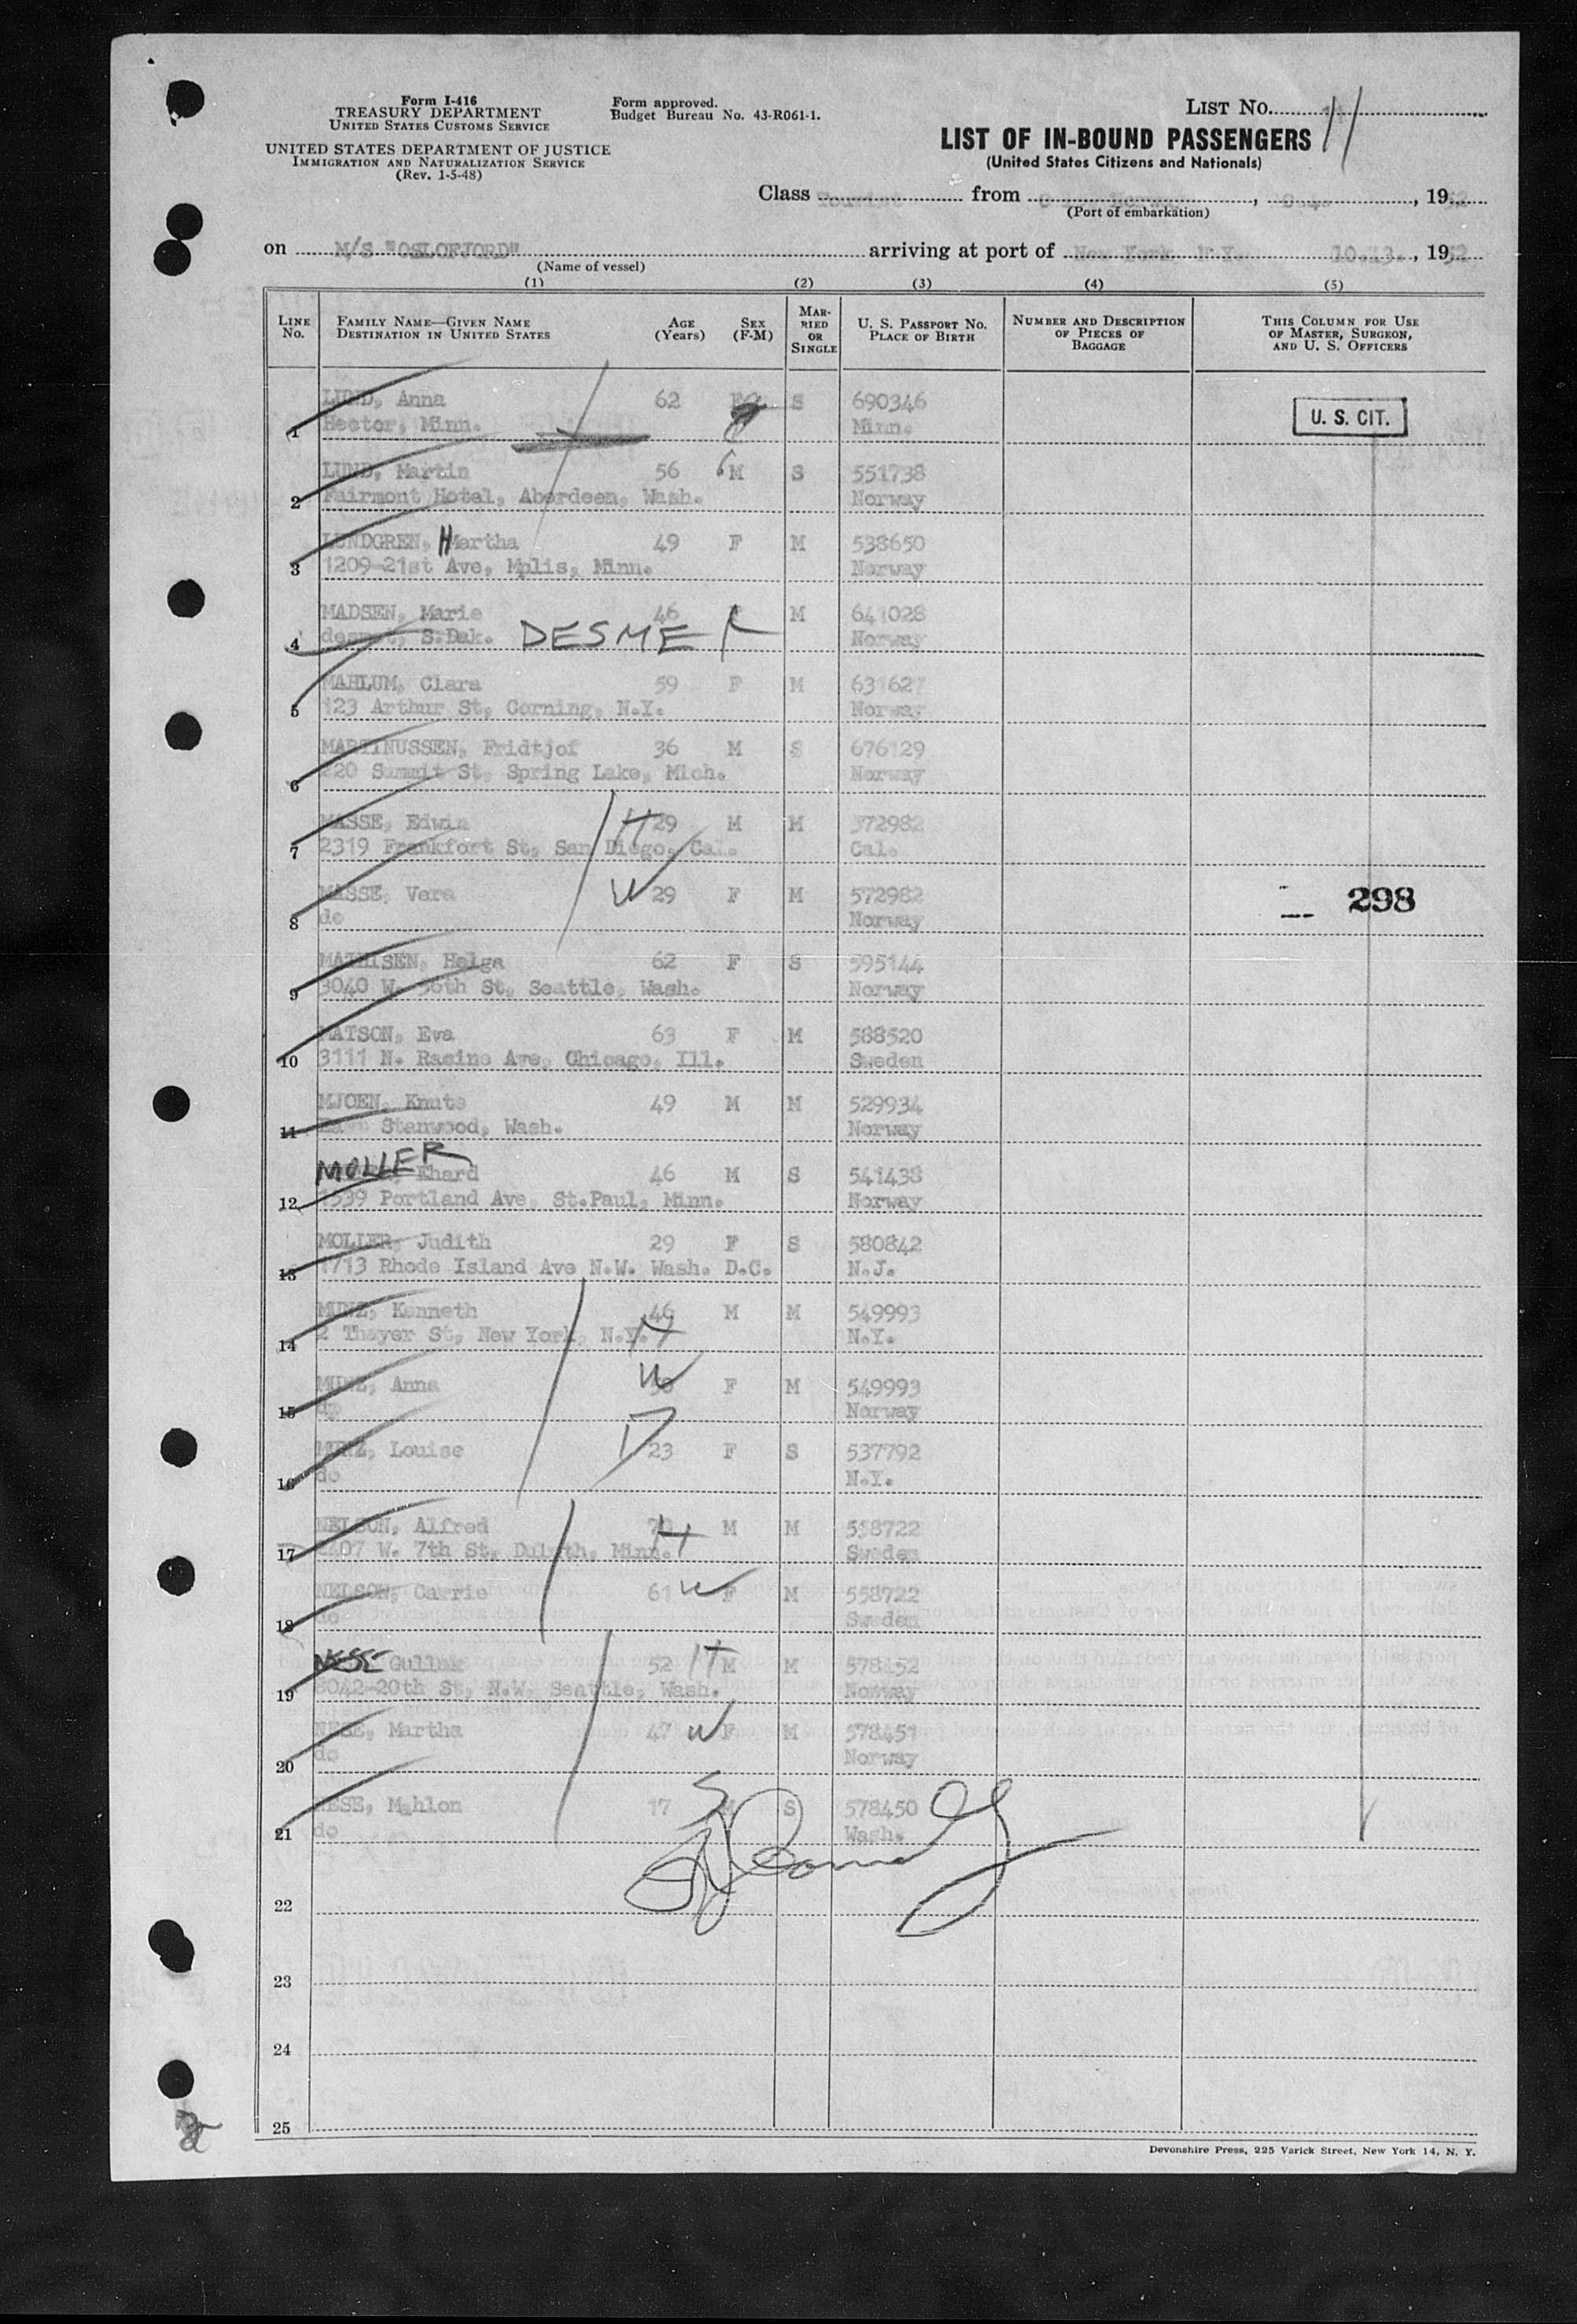 Form I-416
TREASURY DEPARTMENT
UNITED STATES CUSTOMS SERVICE
UNITED STATES DEPARTMENT OF JUSTICE
IMMIGRATION AND NATURALIZATION SERVICE
(Rev. 1-5-48)
Form approved.
Budget Bureau No. 43-R061-1.
LIST No. 11
LIST OF IN-BOUND PASSENGERS
(United States Citizens and Nationals)
Class Tourist from Oslo, Norway, 10.4., 1952
(Port of embarkation)
on M/S "OSLOFJORD" arriving at port of New York N.Y. 10.13., 1952
(Name of vessel)
(1) (2) (3) (4) (5)
LINE No. FAMILY NAME—GIVEN NAME DESTINATION IN UNITED STATES AGE (Years) SEX (F-M) MARRIED OR SINGLE U. S. PASSPORT No. PLACE OF BIRTH NUMBER AND DESCRIPTION OF PIECES OF BAGGAGE THIS COLUMN FOR USE OF MASTER, SURGEON, AND U. S. OFFICERS
LUND, Anna 62 S 690346
1 Hector, Minn. Minn. U. S. CIT.
LUND, Martin 56 M S 551738
2 Fairmont Hotel, Aberdeen, Wash. Norway
LUNDGREN, Hertha 49 F M 538650
3 1209-21st Ave, Mplis, Minn. Norway
MADSEN, Marie 46 M 641028
4 desmet, S.Dak. DESMET Norway
MAHLUM, Clara 59 F M 631627
5 123 Arthur St, Corning, N.Y. Norway
MARTINUSSEN, Fridtjof 36 M S 676129
6 220 Summit St, Spring Lake, Mich. Norway
MASSE, Edwin H 29 M M 372982
7 2319 Frankfort St, San Diego, Cal. Cal.
MASSE, Vera W 29 F M 572982 298
8 do Norway
MATHISEN, Helga 62 F S 595144
9 3040 W. 56th St, Seattle, Wash. Norway
MATSON, Eva 63 F M 588520
10 3111 N. Racine Ave, Chicago, Ill. Sweden
MJOEN, Knute 49 M M 529934
11 Stanwood, Wash. Norway
MOLLER, Ehard 46 M S 541438
12 1539 Portland Ave, St.Paul, Minn. Norway
MOLLER, Judith 29 F S 580842
13 1713 Rhode Island Ave N.W. Wash. D.C. N.J.
MUNZ, Kenneth 46 M M 549993
14 2 Thayer St, New York, N.Y. H N.Y.
MUNZ, Anna W F M 549993
15 do Norway
MUNZ, Louise D 23 F S 537792
16 do N.Y.
NELSON, Alfred H M M 558722
17 2407 W. 7th St, Duluth, Minn. Sweden
NELSON, Carrie 61 W F M 558722
18 do Sweden
NESE Gullak 52 H M M 578452
19 8042-20th St, N.W. Seattle, Wash. Norway
NESE, Martha 47 W F M 578451
20 do Norway
NESE, Mahlon 17 S M S 578450
21 do Wash.
22
23
24
25
Devonshire Press, 225 Varick Street, New York 14, N. Y.